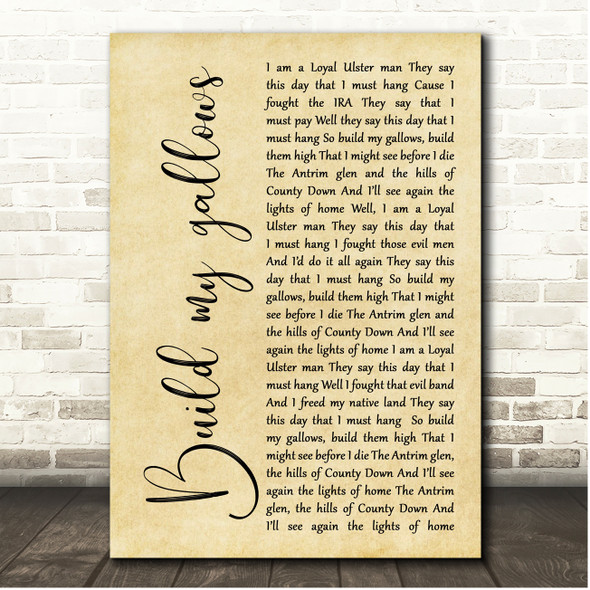 Build my gallows
I am a Loyal Ulster man They say
this day that I must hang Cause I
fought the IRA They say that I
must pay Well they say this day that I
must hang So build my gallows, build
them high That I might see before I die
The Antrim glen and the hills of
County Down And I'll see again the
lights of home Well, I am a Loyal
Ulster man They say this day that
I must hang I fought those evil men
And I'd do it all again They say this
day that I must hang So build my
gallows, build them high That I might
see before I die The Antrim glen and
the hills of County Down And I'll see
again the lights of home I am a Loyal
Ulster man They say this day that I
must hang Well I fought that evil band
And I freed my native land They say
this day that I must hang So build
my gallows, build them high That I
might see before I die The Antrim glen,
the hills of County Down And I'll see
again the lights of home The Antrim
glen, the hills of County Down And
I'll see again the lights of home